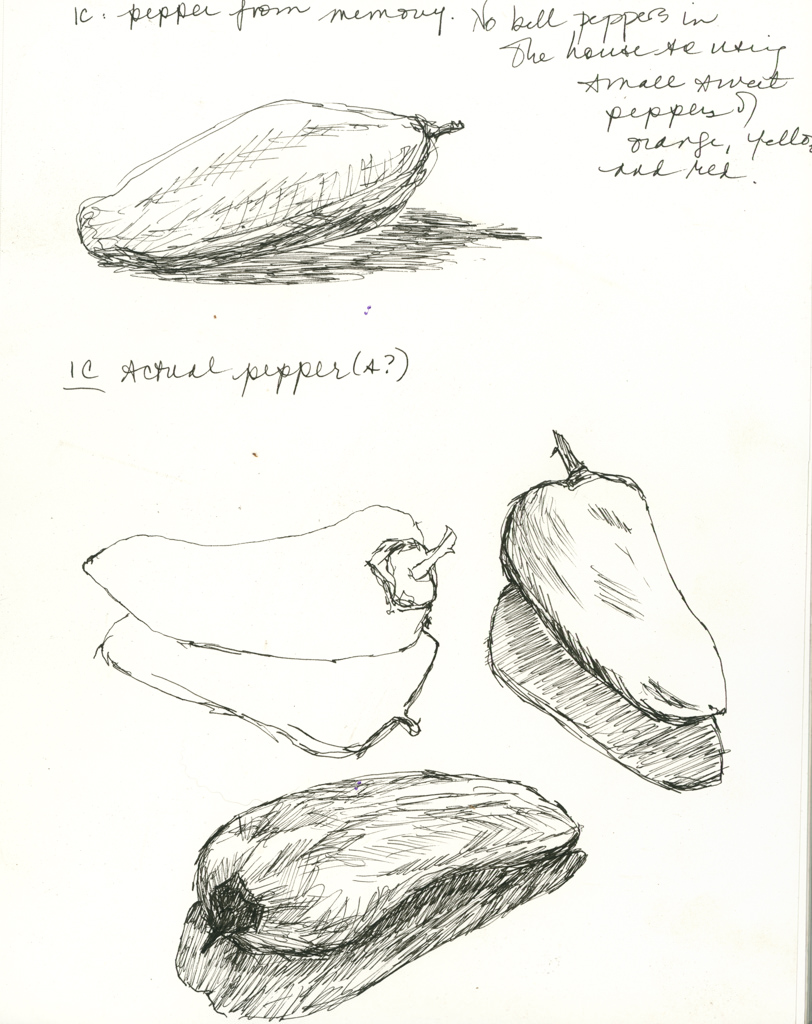 1C: pepper from memory. No bell peppers in
the house so using
small sweet
peppers of
orange, yello
and red.
1C Actual pepper(s?)